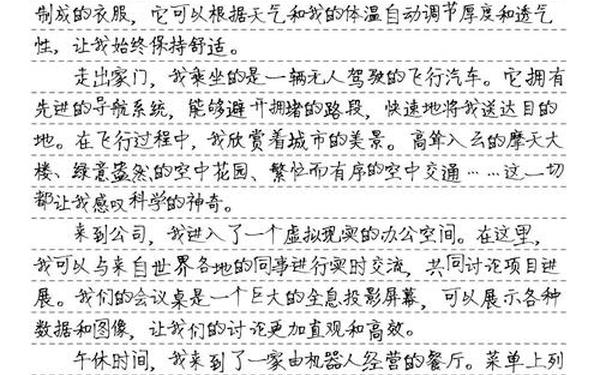 制成的衣服，它可以根据天气和我的体温自动调节厚度和透气
性，让我始终保持舒适。
走出家门，我乘坐的是一辆无人驾驶的飞行汽车。它拥有
先进的导航系统，能够避开拥堵的路段，快速地将我送达目的
地。在飞行过程中，我欣赏着城市的美景。高耸入云的摩天大
楼、绿意盎然的空中花园、繁忙而有序的空中交通……这一切
都让我感叹科学的神奇。
来到公司，我进入了一个虚拟现实的办公空间。在这里，
我可以与来自世界各地的同事进行实时交流，共同讨论项目进
展。我们的会议桌是一个巨大的全息投影屏幕，可以展示各种
数据和图像，让我们的讨论更加直观和高效。
午休时间，我来到了一家由机器人经营的餐厅。菜单上列